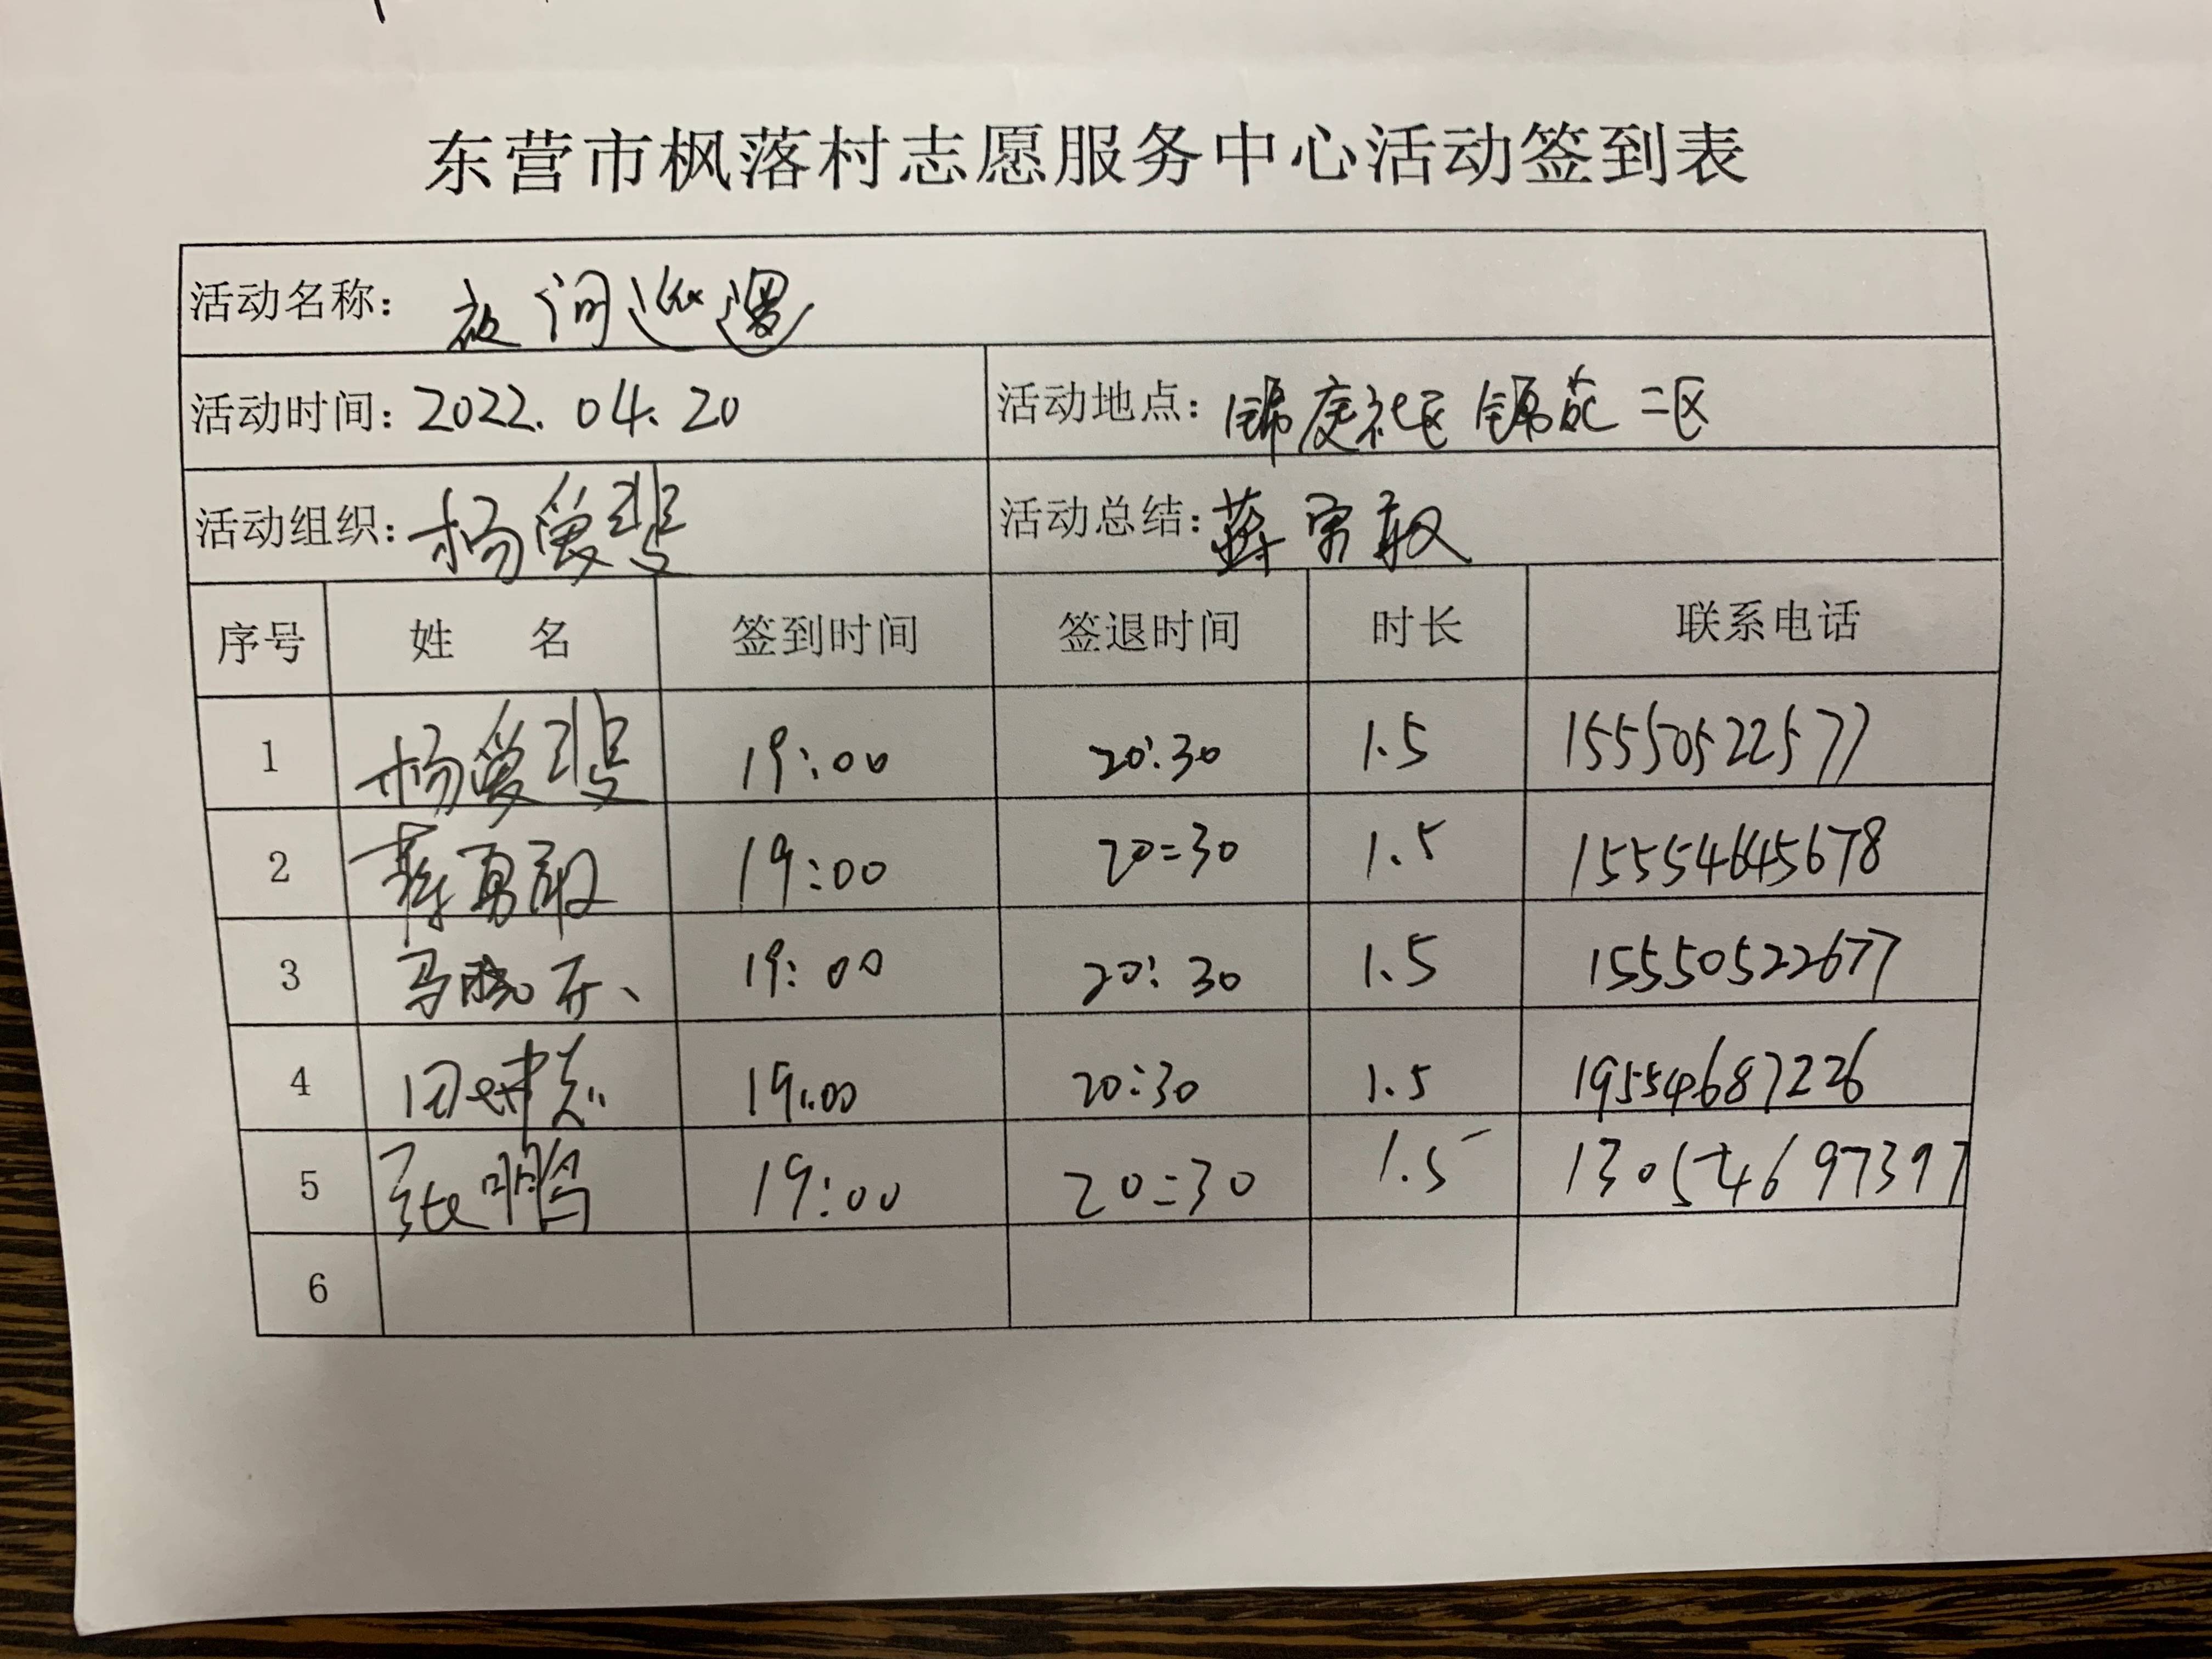 东营市枫落村志愿服务中心活动签到表
活动名称：夜间巡逻
活动时间：2022.04.20 活动地点：锦庭社区锦苑二区
活动组织：杨 活动总结：蒋
序号 姓 名 签到时间 签退时间 时长 联系电话
1 杨 19:00 20:30 1.5 15550522577
2 蒋 19:00 20:30 1.5 15554645678
3 马晓 19:00 20:30 1.5 15550522677
4 田 19:00 20:30 1.5 19554687226
5 张鹏 19:00 20:30 1.5 13054697397
6